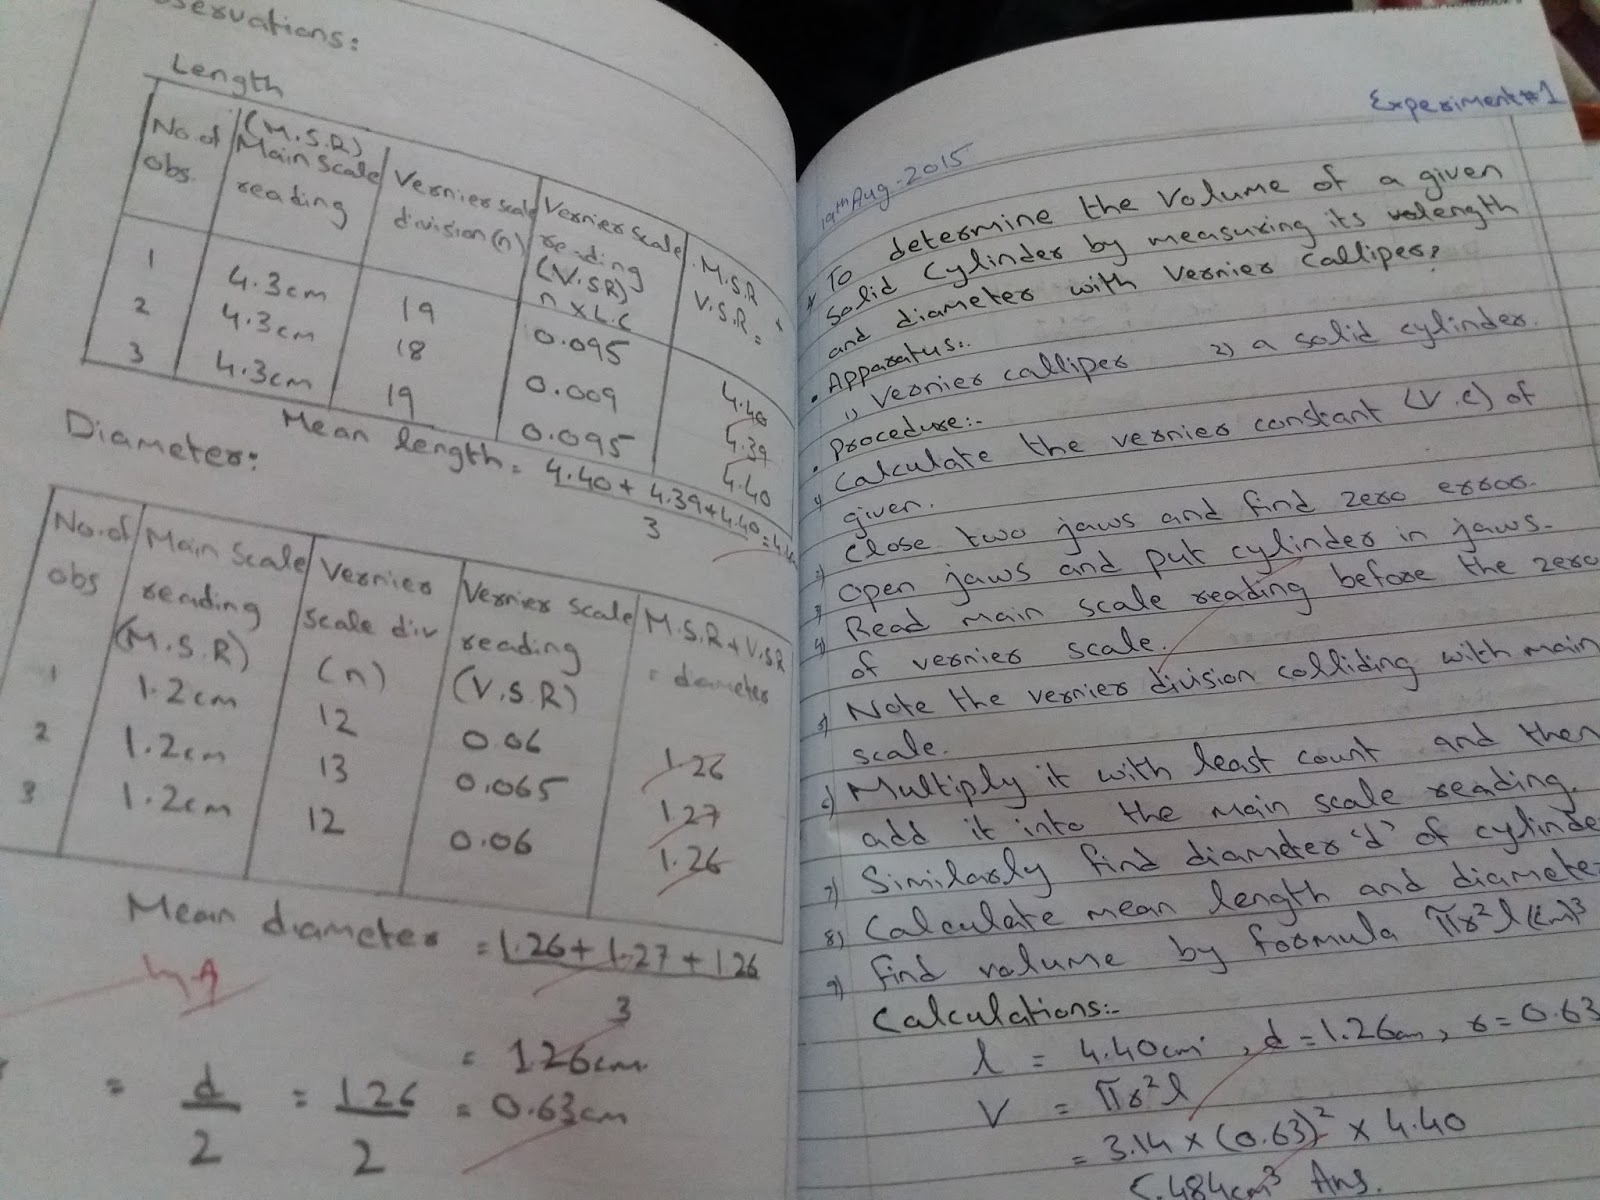 Observations:
Length
No. of obs. | (M.S.R) Main Scale reading | Vernier scale division (n) | Vernier scale reading (V.SR) n x L.C | M.S.R + V.S.R =
1 | 4.3cm | 19 | 0.095 | 4.40
2 | 4.3cm | 18 | 0.009 | 4.39
3 | 4.3cm | 19 | 0.095 | 4.40
Mean length = 4.40 + 4.39 + 4.40
3
Diameter:
No. of obs | Main Scale reading (M.S.R) | Vernier Scale div (n) | Vernier scale reading (V.S.R) | M.S.R + V.SR = diameter
1 | 1.2cm | 12 | 0.06 | 1.26
2 | 1.2cm | 13 | 0.065 | 1.27
3 | 1.2cm | 12 | 0.06 | 1.26
Mean diameter = 1.26 + 1.27 + 1.26
3
= 1.26cm
= d/2 = 1.26/2 = 0.63cm
Experiment #1
19th Aug. 2015
To determine the Volume of a given
Solid Cylinder by measuring its length
and diameter with Vernier Callipers?
Apparatus:.
1) Vernier calliper 2) a solid cylinder.
Procedure:-
1) Calculate the vernier constant (V.C) of
given.
2) Close two jaws and find zero error.
3) Open jaws and put cylinder in jaws.
4) Read main scale reading before the zero
of vernier scale.
5) Note the vernier division colliding with main
scale.
6) Multiply it with least count and then
add it into the main scale reading.
7) Similarly find diameter 'd' of cylinde
8) Calculate mean length and diamete
9) Find volume by foormula πr²l (cm)³
Calculations:-
l = 4.40cm, d = 1.26cm, r = 0.63
V = πr²l
= 3.14 x (0.63)² x 4.40
5.484cm³ Ans.